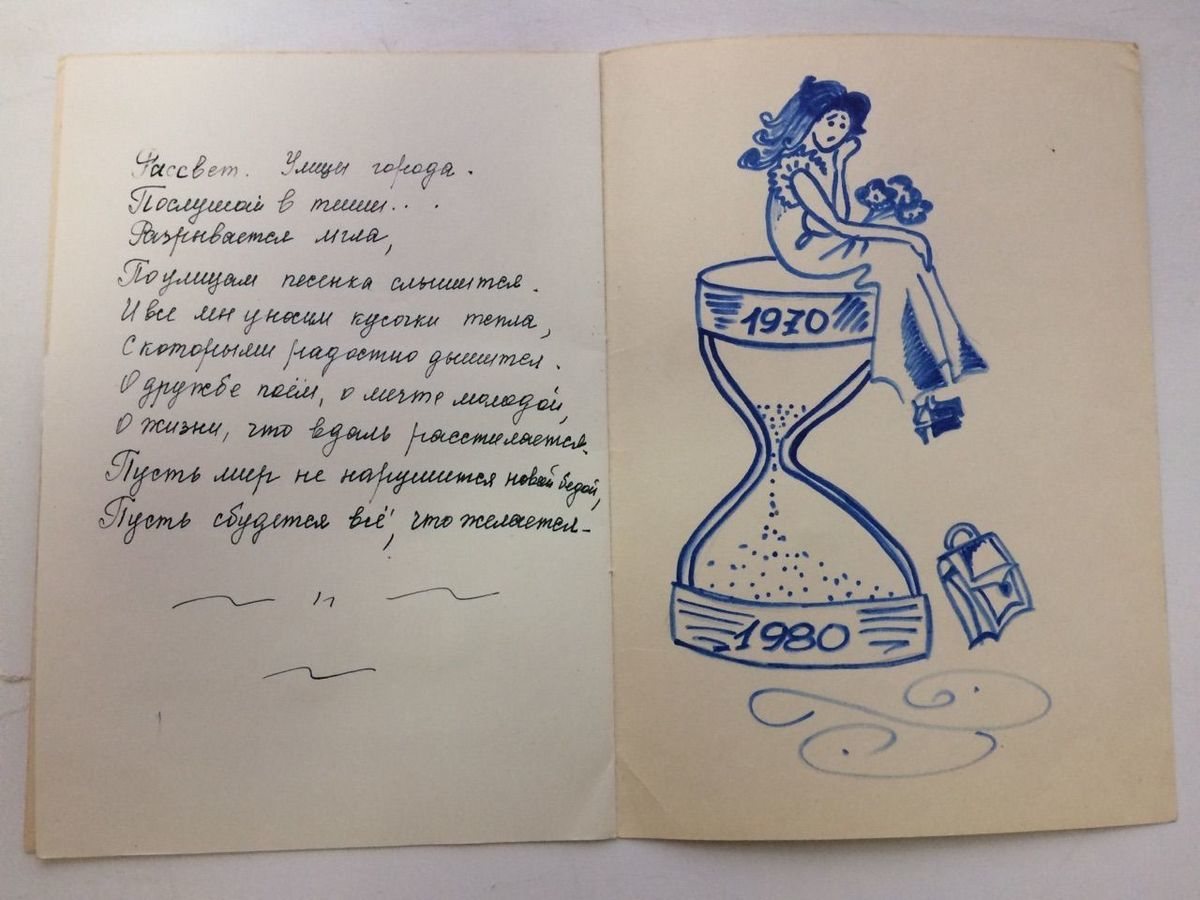 Рассвет. Улицы города.
Послушай в тиши...
Разрывается мгла,
По улицам песенка слышится.
И все мы уносим кусочки тепла,
С которыми радостно дышится.
О дружбе поём, о мечте молодой,
О жизни, что вдаль расстилается.
Пусть мир не нарушится новой бедой,
Пусть сбудется всё, что желается
1970
1980